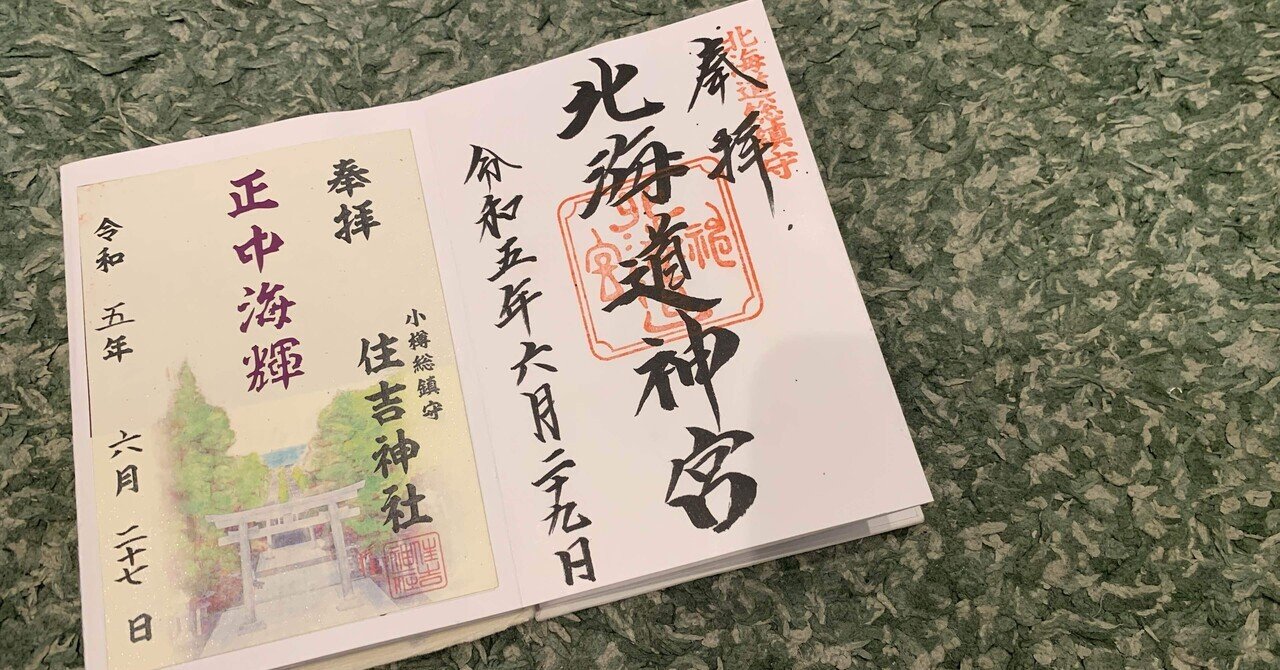 北海道総鎮守
奉拝
北海道神宮
令和五年六月二十九日
奉拝
小樽総鎮守
住吉神社
正中海輝
令和 五年 六月 二十七 日